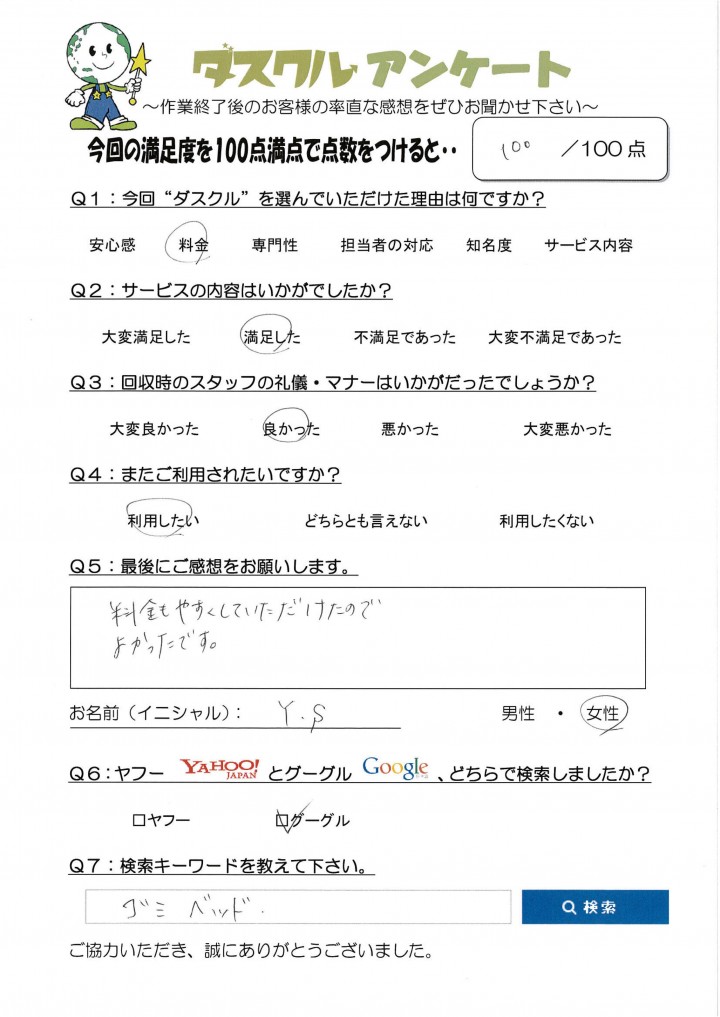 ダスクル アンケート
～作業終了後のお客様の率直な感想をぜひお聞かせ下さい～
今回の満足度を100点満点で点数をつけると‥ 100 ／100点
Q1：今回“ダスクル”を選んでいただけた理由は何ですか？
安心感 料金 専門性 担当者の対応 知名度 サービス内容
Q2：サービスの内容はいかがでしたか？
大変満足した 満足した 不満足であった 大変不満足であった
Q3：回収時のスタッフの礼儀・マナーはいかがだったでしょうか？
大変良かった 良かった 悪かった 大変悪かった
Q4：またご利用されたいですか？
利用したい どちらとも言えない 利用したくない
Q5：最後にご感想をお願いします。
料金もやすくしていただけたので
よかったです。
お名前（イニシャル）： Y.S 男性 ・ 女性
Q6：ヤフー YAHOO! JAPAN とグーグル Google 、どちらで検索しましたか？
□ヤフー □グーグル
Q7：検索キーワードを教えて下さい。
ゴミ ベッド. 検索
ご協力いただき、誠にありがとうございました。